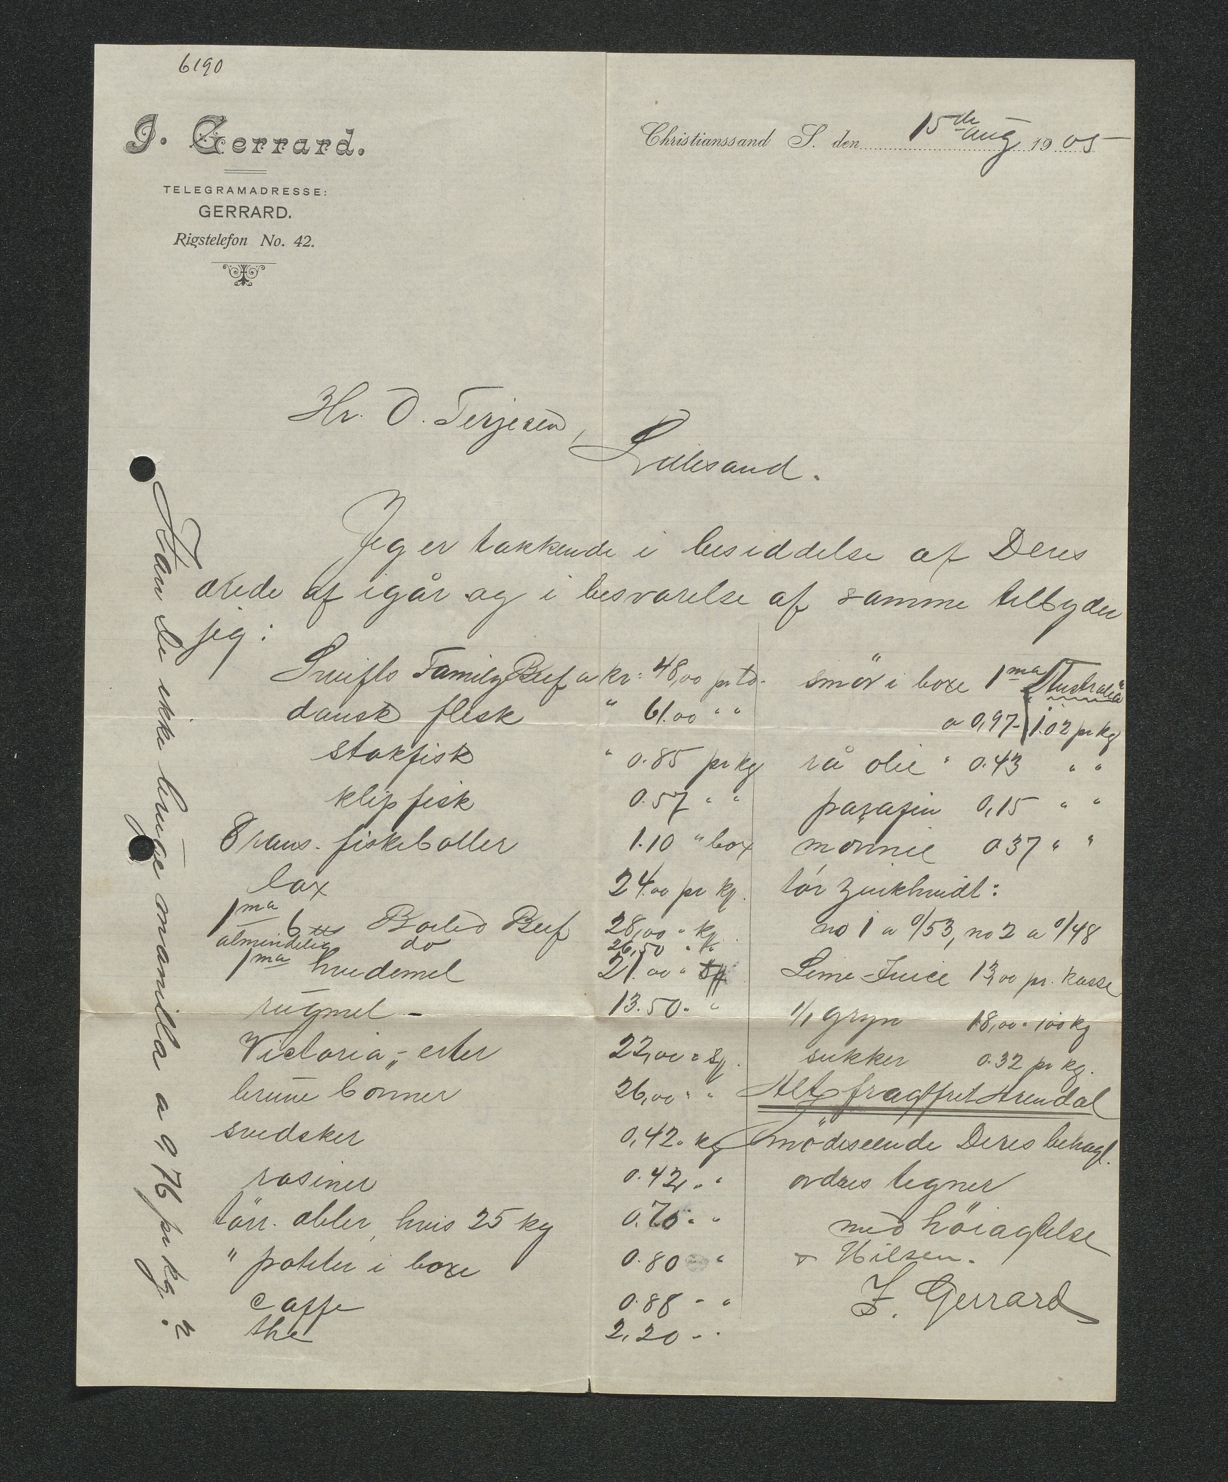 6190
J. Gerrard.
TELEGRAMADRESSE:
GERRARD.
Rigstelefon No. 42.
Christianssand S. den 15de aug 1905
Hr. O. Terjesen,
Lillesand.
Jeg er takkende i besiddelse af Deres
ærede af igår og i besvarelse af samme tilbyder
jeg:
Swifts Family Beef a kr: 48,00 pr td.
dansk flesk " 61.00 " "
stokfisk " 0.85 pr kg
klipfisk 0.57 " "
Trans. fiskeboller 1.10 " box
lax 24.00 pr kg.
1ma 6 tts Boiled Beef 28,00 " k
almindelig do 26,50 " k
1ma hvedemel 21.00 "
rugmel - 13.50 - "
Victoria-erter 22,00 " s
brune bønner 26,00 " "
svedsker 0,42 " kg
rasiner 0.42 " "
tørr. æbler, hvis 25 kg 0.70 - "
" poteter i boxe 0.80 "
caffe 0.88 - "
the 2,20 - "
smør i boxe 1ma "Australia"
a 0,97 - 1.02 pr kg
rå olie " 0.43 " "
parafin 0,15 " "
mønnie 0.37 " "
tør zinkhvidt:
no 1 a 0/53, no 2 a 0/48
Lime-Juice 13,00 pr. kasse
1/1 gryn 18,00 " 100 kg
sukker 0.32 pr kg.
Alt fragtfrit Arendal
Imødeseende Deres behagl.
ordres tegner
med høiagtelse
& Hilsen.
J. Gerrard
Kan De ikke bruge manilla a 0,76 pr kg.?